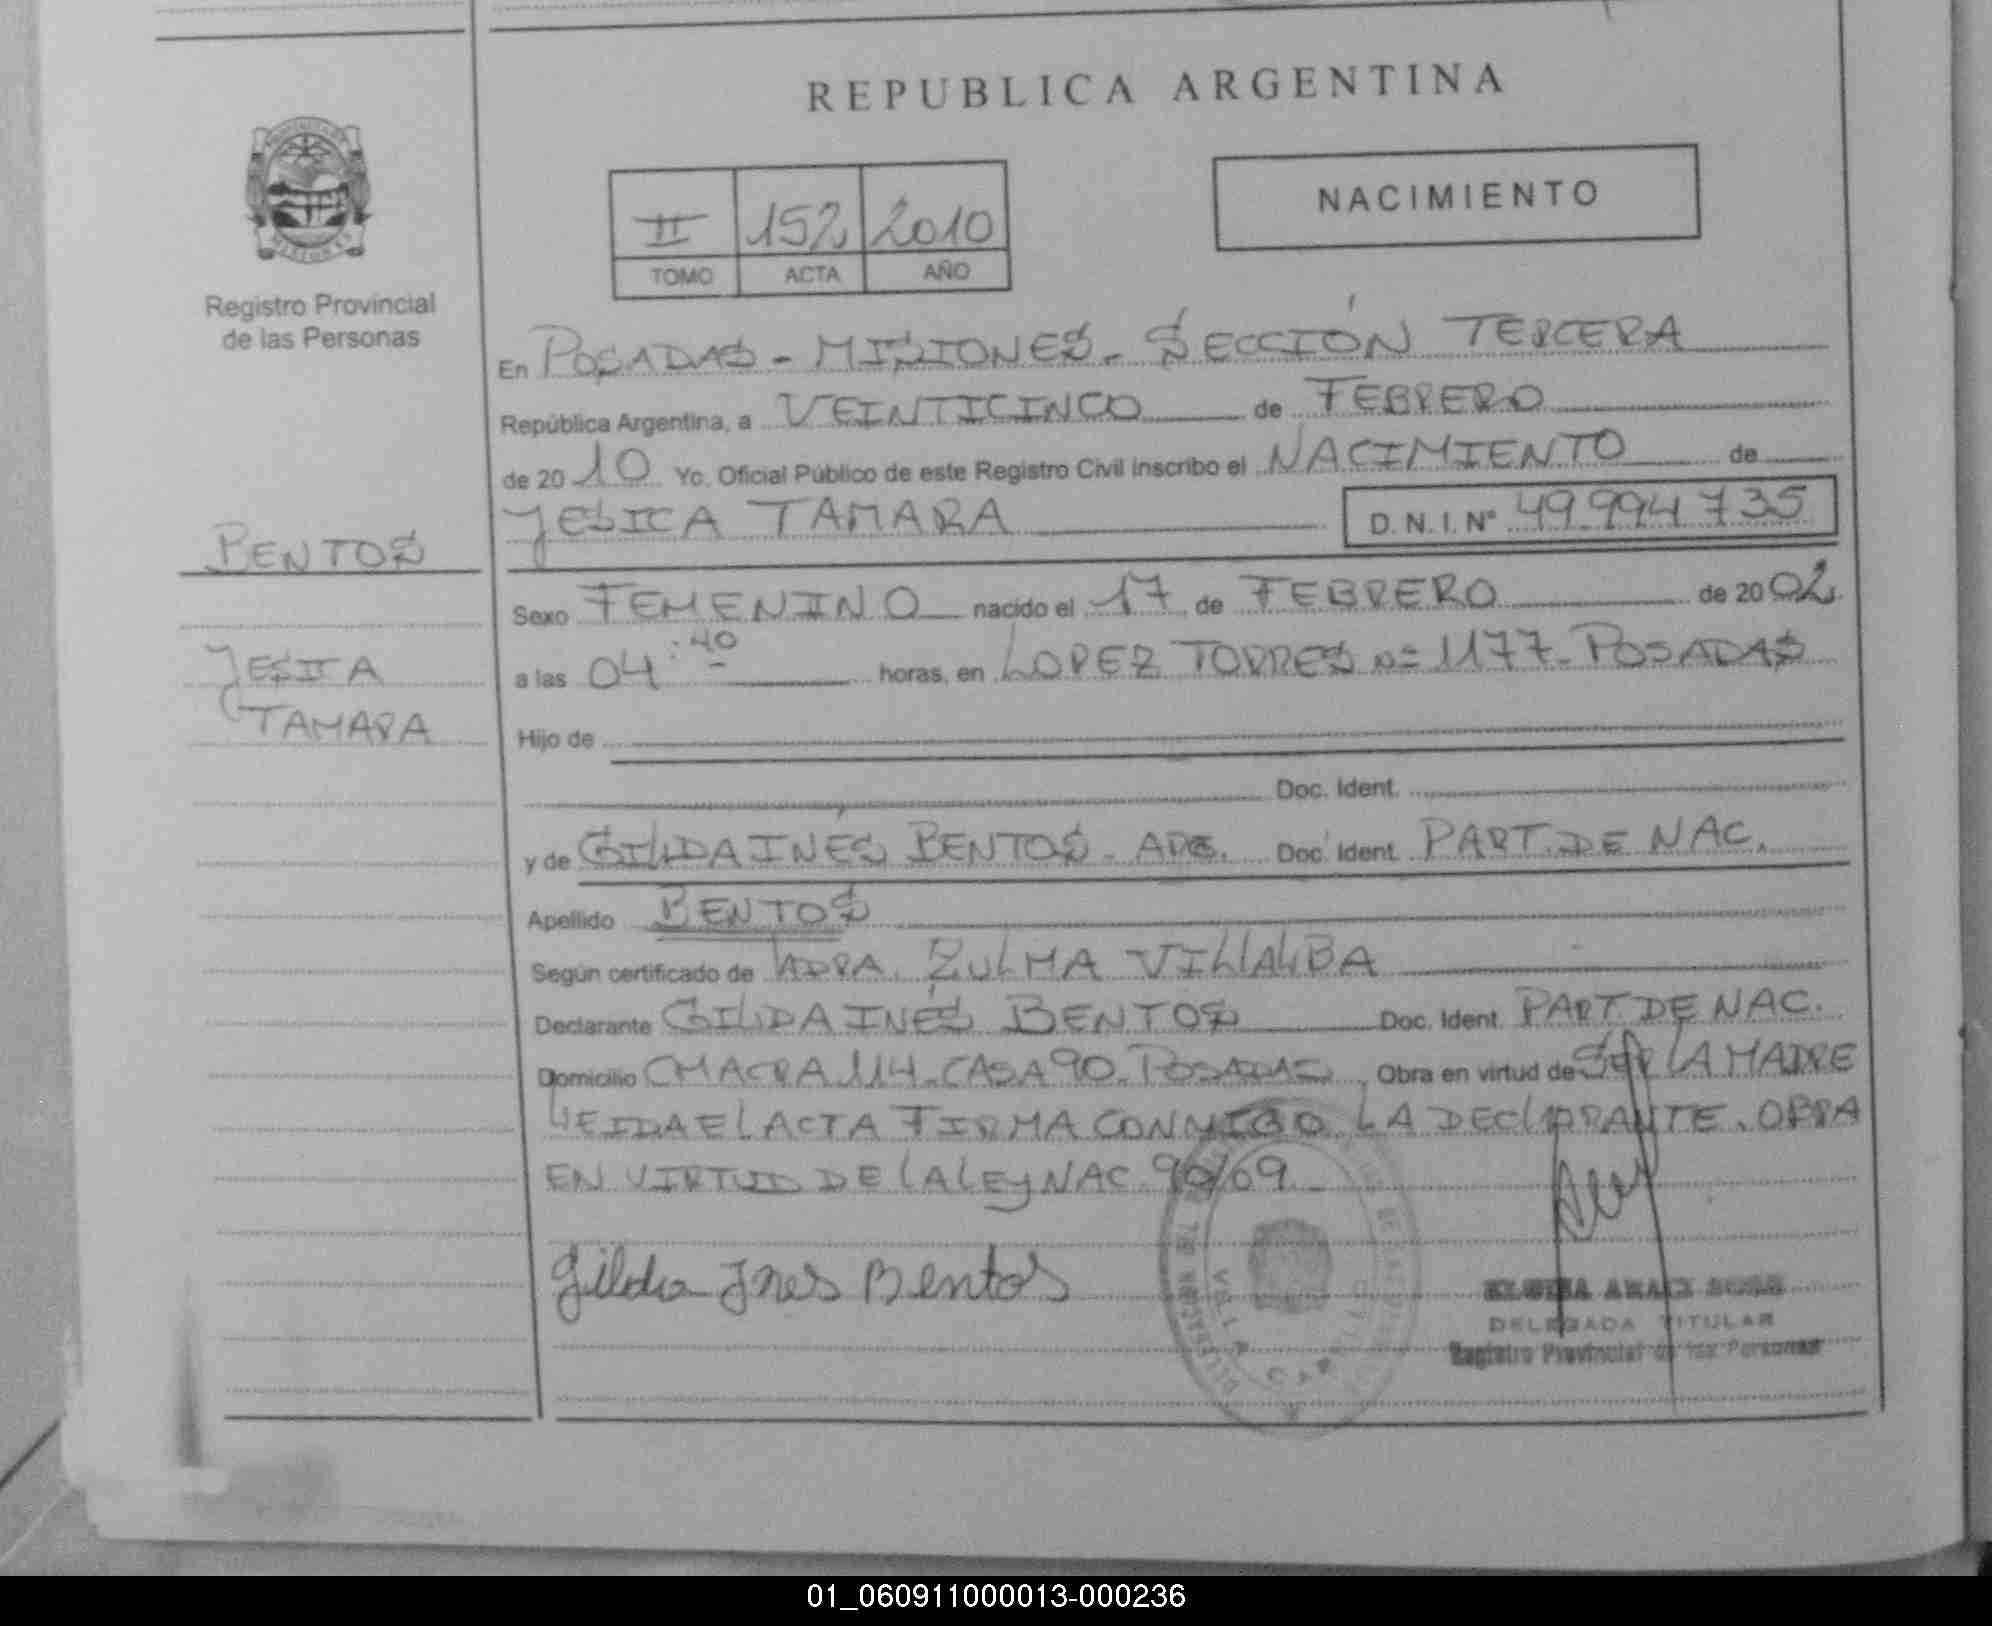 REPUBLICA ARGENTINA
NACIMIENTO
II 152 2010
TOMO ACTA AÑO
Registro Provincial
de las Personas
En POSADAS - MISIONES - SECCIÓN TERCERA
República Argentina, a VEINTICINCO de FEBRERO
de 2010 Yo, Oficial Público de este Registro Civil inscribo el NACIMIENTO de
YESICA TAMARA D.N.I. Nº 49.994.735
BENTOS
Sexo FEMENINO nacido el 17 de FEBRERO de 2002
YESICA
TAMARA
a las 04:40 horas, en LOPEZ TORRES Nº 1177 - POSADAS
Hijo de
Doc. Ident.
y de GILDA INÉS BENTOS - ARG. Doc. Ident. PART. DE NAC.
Apellido BENTOS
Según certificado de ZULMA VILLALBA
Declarante GILDA INÉS BENTOS Doc. Ident. PART. DE NAC.
Domicilio CHACRA 114 - CASA 90 - POSADAS, Obra en virtud de SER LA MADRE
LEIDA EL ACTA FIRMA CONMIGO LA DECLARANTE. OBRA
EN VIRTUD DE LA LEY NAC. 90/09
Gilda Ines Bentos
DELEGADA TITULAR
Registro Provincial de las Personas
01_060911000013-000236